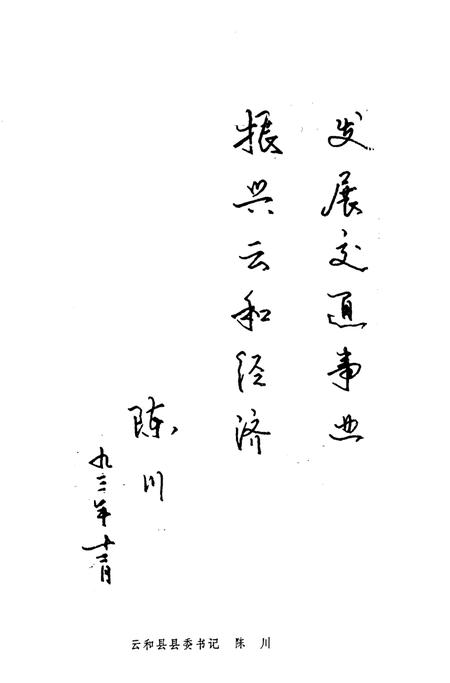 发展交通事业
振兴云和经济
陈川
九三年十二月
云和县县委书记 陈 川